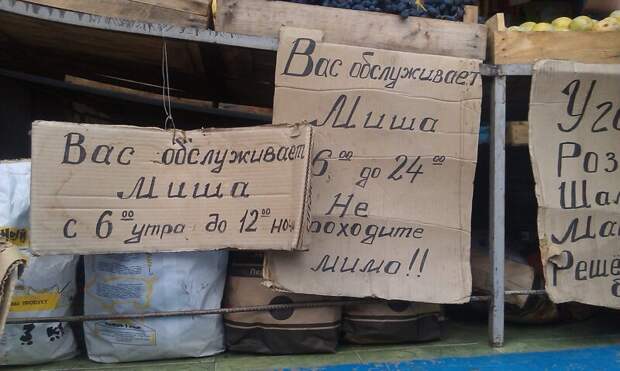 Вас обслуживает
Миша
с 6⁰⁰ утра до 12⁰⁰ но
Вас обслуживает
Миша
6⁰⁰ до 24⁰⁰
Не
роходите
мимо!!
Уго
Роз
Шал
Ма
Реше